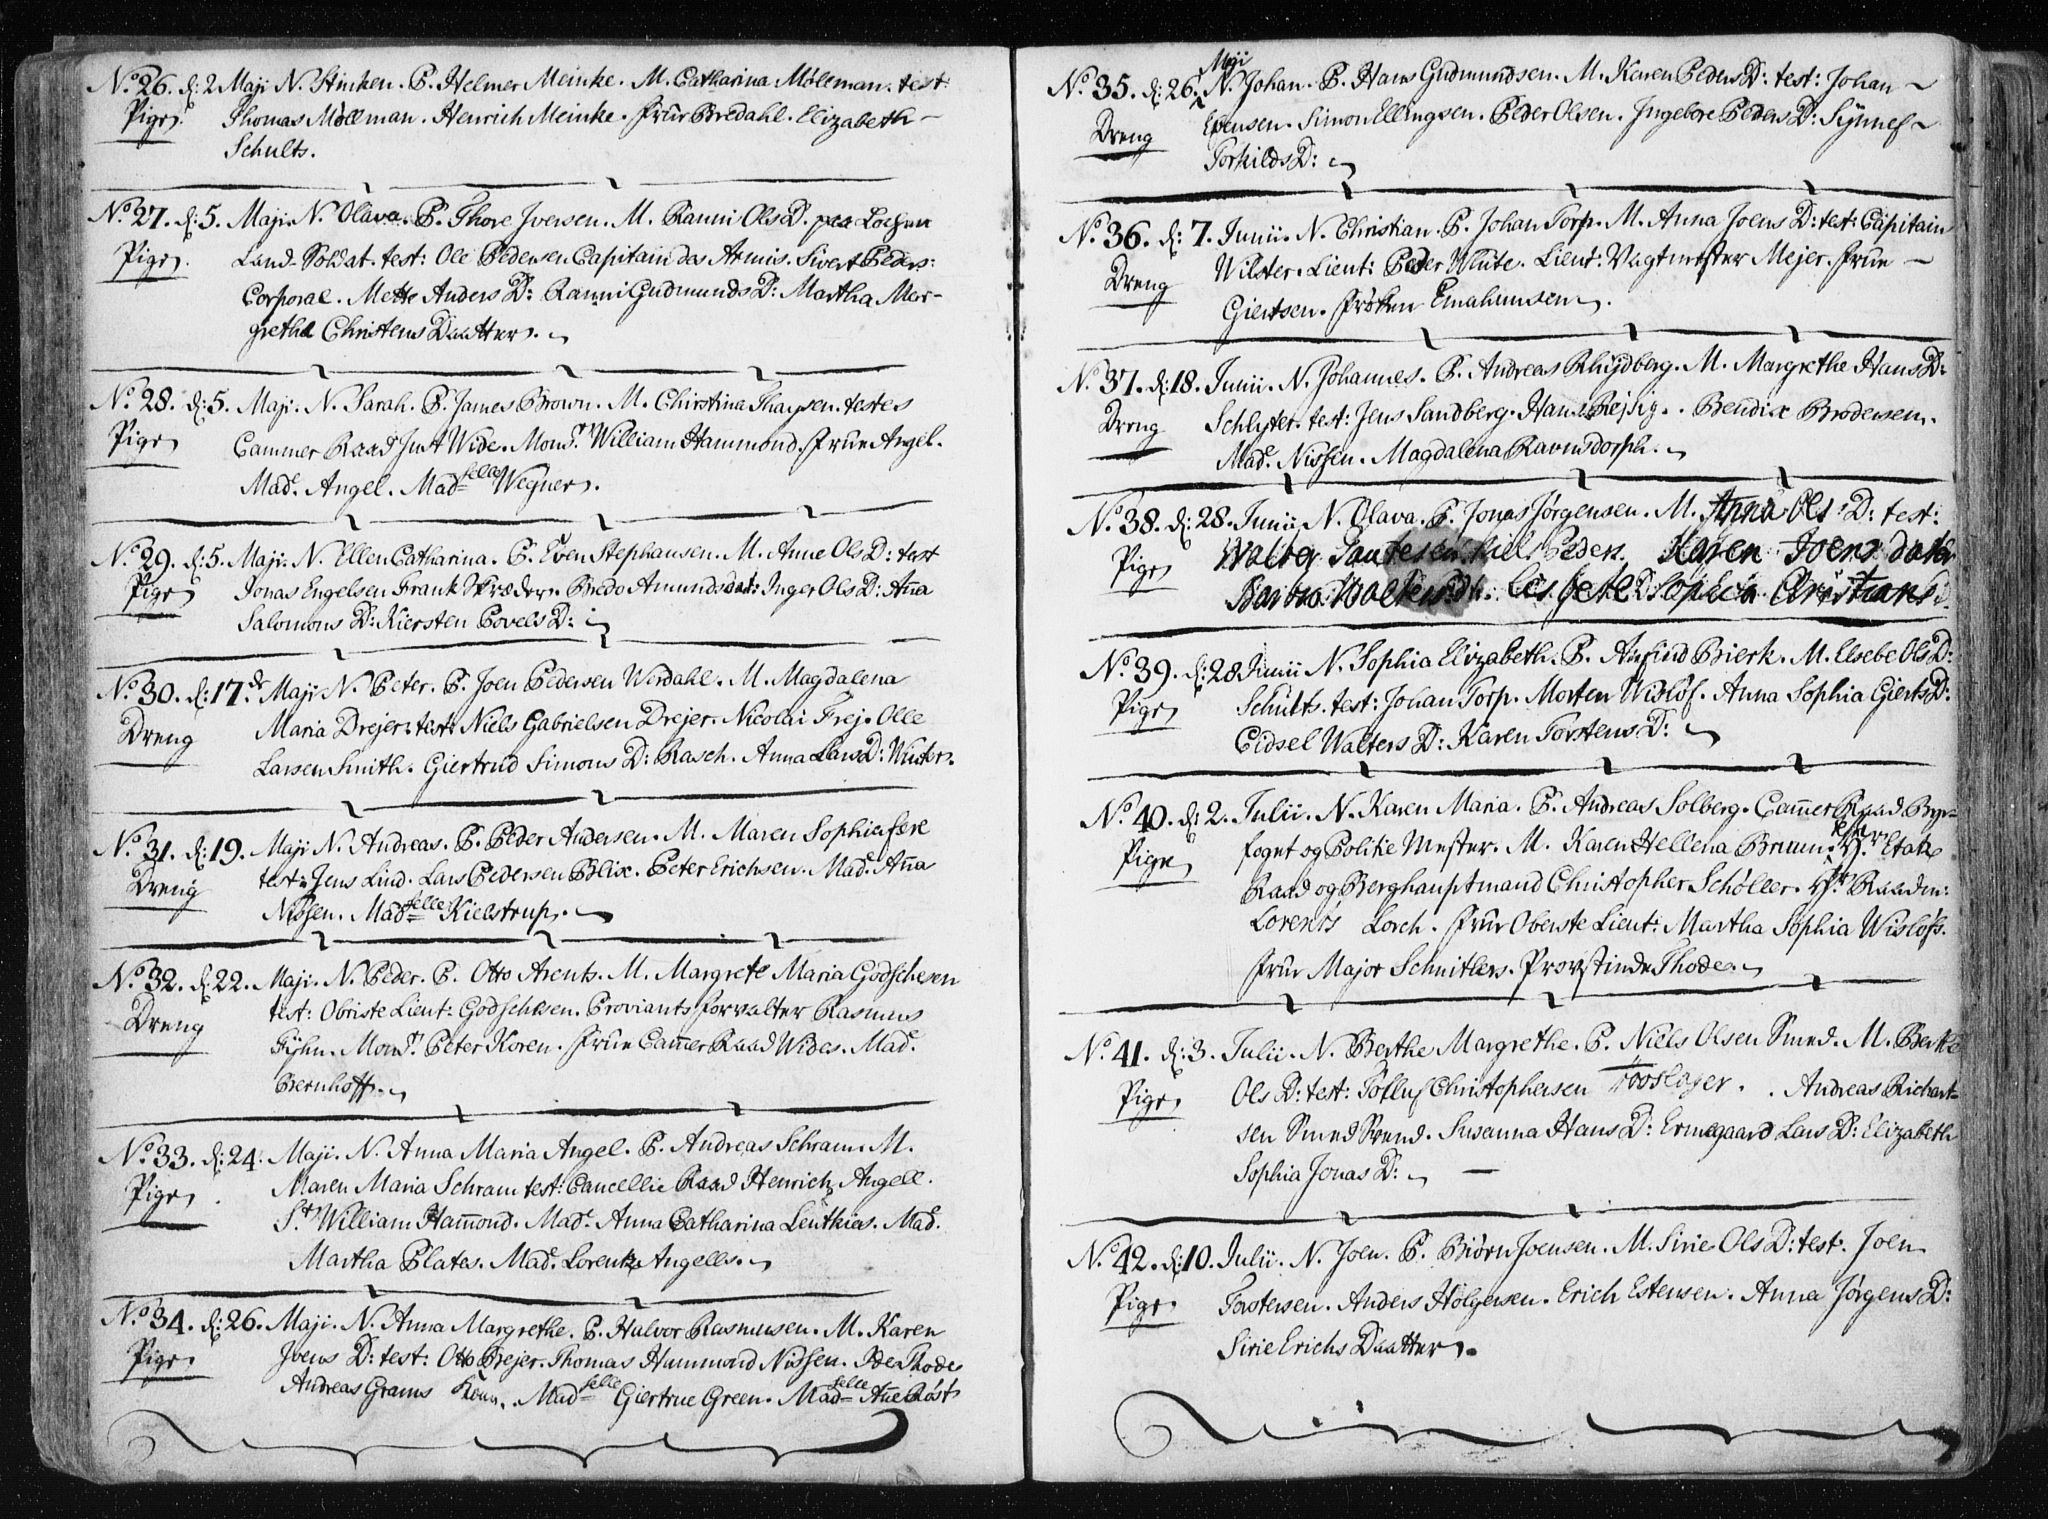 No. 26. d: 2 Maji N. Stinken. P. Helmer Meinke. M. Catharina Möllman. test:
Pige. Thomas Möllman. Henrich Meinke. Frue Bredahl. Elizabeth
Schults.
No. 27. d: 5. Maji. N. Olava. P. Thore Iversen. M. Ranni Ols D. paa
Pige. Land-Soldat. test: Ole Pedersen Capitain des Armis. Sivert Peders:
Corporal. Mette Anders D: Ranni Gudmunds D: Martha Mar-
grethe Christens Daatter.
No. 28. d: 5. Maji. N. Sarah. P. James Brown. M. Chirstina Thaysen. testes
Pige Cammer Raad Just Wide. Monsr. William Hammond. Frue Angel.
Mad. Angel. Madsella Wegner.
No. 29. d: 5. Maji. N. Ellen Catharina. P. Even Stephansen. M. Anne Ols D: test
Pige Jonas Engelsen Frank Spræder. Bredo Amundsdat: Inger Ols D: Aña
Salomons D: Kiersten Povels D:
No. 30. d: 17de Maji N. Peter. P. Joen Pedersen Werdahl. M. Magdalena
Dreng Maria Drejer. test: Niels Gabrielsen Drejer. Nicolai Frej. Olle
Larsen Smith. Giertrud Simons D: Rasch. Anna Lars D: Winter.
No. 31. d: 19. Maji N. Andreas. P. Peder Andersen. M. Maren Sophia fære
Dreng test: Jens Lind. Lars Pedersen Blix. Peter Erichsen. Mad. Aña
Nissen. Madselle Kielstrup.
No. 32. d: 22. Maji. N. Peder. P. Otto Arentz. M. Margrete Maria Godschesen
Dreng test: Obriste Lieut: Godschesen. Proviants forvalter Rasmus
Fyhn. Monsr. Peter Koren. Frue Cam̃er Raad Wides. Mad.
Bernhoff.
No. 33. d: 24. Maji. N. Anna Maria Angel. P. Andreas Schram. M.
Pige. Maren Maria Schram test: Cancellie Raad Henrich Angell.
Sr. William Ham̃ond. Mad. Anna Catharina Leuthier. Mad.
Martha Plates. Mad. Lorentz Angells.
No. 34. d: 26. Maji. N. Anna Margrethe. P. Halvor Rasmusen. M. Karen
Pige. Joens D: test: Otto Drejer. Thomas Hammond Nissen. Ide Thode
Andreas Grams Kone. Madselle Giertrue Green. Madselle Añe Röst
Maji
No. 35. d: 26. N. Johan. P. Hans Gudmundsen. M. Karen Peders D: test: Johan
Dreng Evensen. Simon Ellingsen. Peder Olsen. Ingebore Peders D: Synnef
Torkilds D:
No. 36. d: 7. Junii. N. Christian. P. Johan Torp. M. Anna Joens D: test: Capitain
Dreng Wilster. Lieut: Peder Wlute. Lieut: Vagtmester Mejer. Frue
Giertsen. Frøken Emahunsen.
No. 37. d: 18. Junii. N. Johannes. P. Andreas Rhydberg. M. Margrethe Hans D:
Dreng Schlyter. test: Jens Sandberg. Hans Rejsig. Bendix Brodersen.
Mad. Nissen. Magdalena Ravnsdorph.
No. 38. d: 28. Junii N. Olava. P. Jonas Jørgensen. M. Anna Ols D: test:
Pige Walter Peders. Karen Joens datter
Barbra Walters D: Sophia Christians D.
No. 39. d: 28 Junii N. Sophia Elizabeth. P. Anfind Bierk. M. Elsebe Ols D:
Pige Schults. test: Johan Torp. Morten Wisløf. Anna Sophia Gierts D:
Eidsel Walters D: Karen Torstens D:
No. 40. d: 2. Julii. N. Karen Maria. P. Andreas Solberg. Cam̃er Raad Bye-
Pige foget og Politie Mester. M. Karen Hellena Bruun. test: Hr. Etats
Raad og Berghauptmand Christopher Schøller. Hr. Raadm:
Lorents Lorch. Frue Oberste Lieut: Martha Sophia Wisløfs.
Frue Major Schnitlers. Provstinde Thode.
No. 41. d: 3. Julii. N. Berthe Margrethe. P. Niels Olsen Smed. M. Berthe
Pige. Ols D: test: Tølluf Christophersen Toosloger. Andreas Richart-
sen Smed Svend. Susanna Hans D: Ermegaard Lars D: Elizabeth
Sophia Jonas D:
No. 42. d: 10. Julii. N. Joen. P. Biørn Joensen. M. Sirie Ols D: test. Joen
Pige Torstersen. Anders Holgersen. Erich Estensen. Anna Jørgens D:
Sirie Erichs Daatter.